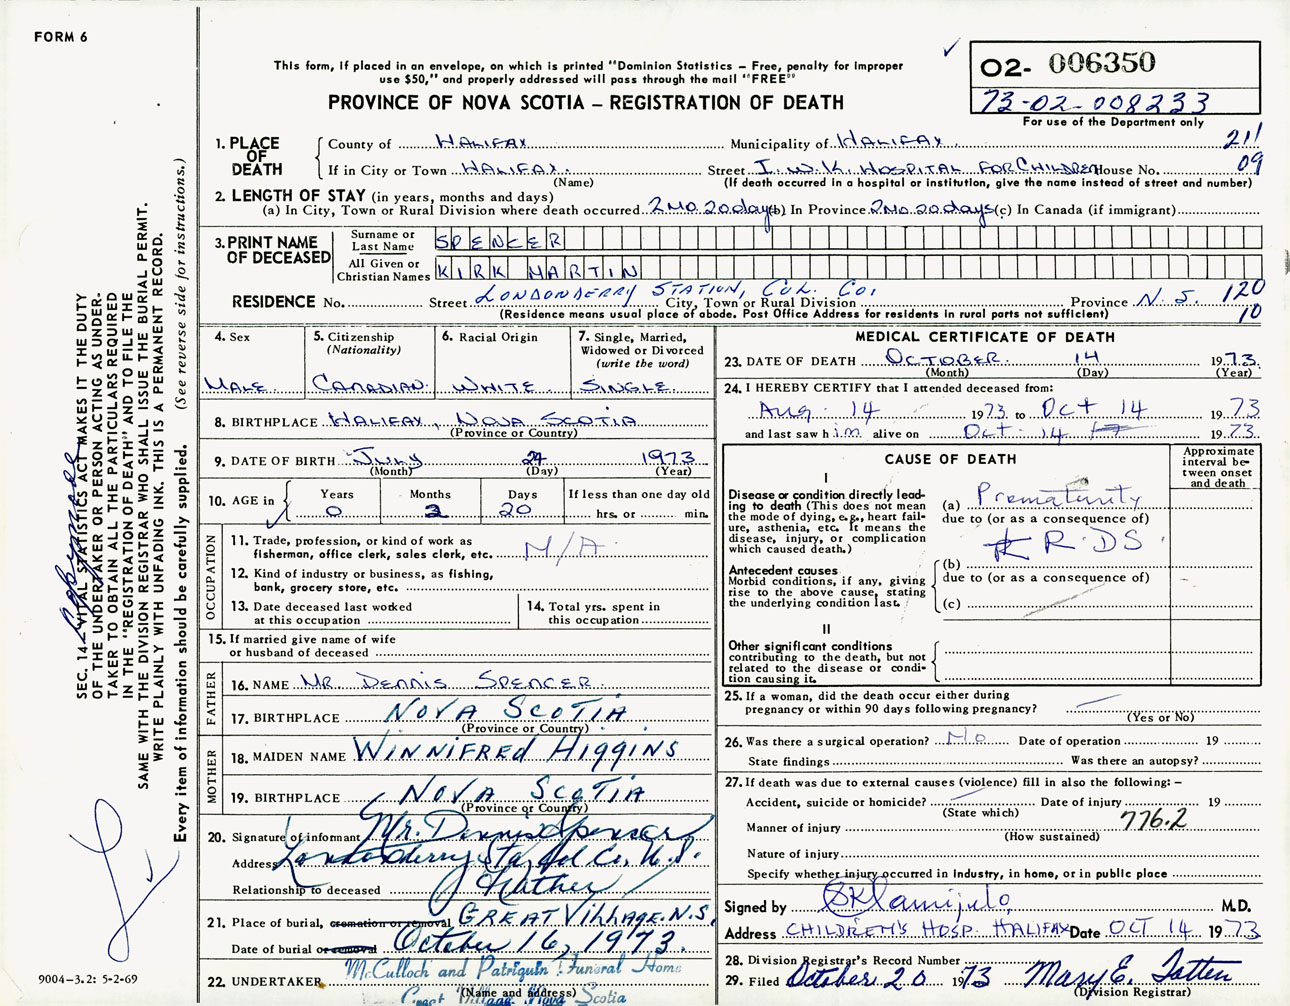 FORM 6
This form, if placed in an envelope, on which is printed "Dominion Statistics – Free, penalty for improper
use $50," and properly addressed will pass through the mail "FREE"
PROVINCE OF NOVA SCOTIA – REGISTRATION OF DEATH
✓
O2- 006350
73-02-008233
For use of the Department only
1. PLACE OF DEATH
County of HALIFAX Municipality of HALIFAX 211
If in City or Town HALIFAX Street I.W.K. HOSPITAL FOR CHILDREN House No. 09
(Name) (If death occurred in a hospital or institution, give the name instead of street and number)
2. LENGTH OF STAY (in years, months and days)
(a) In City, Town or Rural Division where death occurred 2 MO. 20 days (b) In Province 2 MO. 20 days (c) In Canada (if immigrant)
3. PRINT NAME OF DECEASED
Surname or Last Name SPENCER
All Given or Christian Names KIRK MARTIN
RESIDENCE No. Street LONDONDERRY STATION, COL. CO. City, Town or Rural Division Province N.S. 120
(Residence means usual place of abode. Post Office Address for residents in rural parts not sufficient) 10
4. Sex MALE
5. Citizenship (Nationality) CANADIAN
6. Racial Origin WHITE
7. Single, Married, Widowed or Divorced (write the word) SINGLE
8. BIRTHPLACE HALIFAX, NOVA SCOTIA
(Province or Country)
9. DATE OF BIRTH JULY 24 1973
(Month) (Day) (Year)
10. AGE in Years 0 Months 2 Days 20 If less than one day old hrs. or min.
OCCUPATION
11. Trade, profession, or kind of work as fisherman, office clerk, sales clerk, etc. N/A
12. Kind of industry or business, as fishing, bank, grocery store, etc.
13. Date deceased last worked at this occupation
14. Total yrs. spent in this occupation
15. If married give name of wife or husband of deceased
FATHER
16. NAME MR. DENNIS SPENCER
17. BIRTHPLACE NOVA SCOTIA
(Province or Country)
MOTHER
18. MAIDEN NAME WINNIFRED HIGGINS
19. BIRTHPLACE NOVA SCOTIA
(Province or Country)
20. Signature of informant Mr. Dennis Spencer
Address Londonderry Sta, Col Co. N.S.
Relationship to deceased Father
21. Place of burial, cremation or removal GREAT VILLAGE. N.S.
Date of burial or removal October 16, 1973.
22. UNDERTAKER McCulloch and Patriquin Funeral Home
(Name and address)
Great Village, Nova Scotia
MEDICAL CERTIFICATE OF DEATH
23. DATE OF DEATH OCTOBER 14 1973
(Month) (Day) (Year)
24. I HEREBY CERTIFY that I attended deceased from:
Aug 14 1973 to Oct 14 1973
and last saw him alive on Oct 14 1973
CAUSE OF DEATH
Approximate interval between onset and death
I
Disease or condition directly leading to death (This does not mean the mode of dying, e.g., heart failure, asthenia, etc. It means the disease, injury, or complication which caused death.)
(a) Prematurity
due to (or as a consequence of)
(b) R.D.S.
due to (or as a consequence of)
(c)
Antecedent causes
Morbid conditions, if any, giving rise to the above cause, stating the underlying condition last.
II
Other significant conditions
contributing to the death, but not related to the disease or condition causing it.
25. If a woman, did the death occur either during pregnancy or within 90 days following pregnancy?
(Yes or No)
26. Was there a surgical operation? No Date of operation 19
State findings Was there an autopsy?
27. If death was due to external causes (violence) fill in also the following: –
Accident, suicide or homicide? Date of injury 19
(State which)
Manner of injury 776.2
(How sustained)
Nature of injury
Specify whether injury occurred in industry, in home, or in public place
Signed by M.D.
Address CHILDREN'S HOSP. HALIFAX Date OCT 14 1973
28. Division Registrar's Record Number
29. Filed October 20 1973 Mary E. Totten
(Division Registrar)
SEC. 14 – VITAL STATISTICS ACT MAKES IT THE DUTY
OF THE UNDERTAKER OR PERSON ACTING AS UNDER-
TAKER TO OBTAIN ALL THE PARTICULARS REQUIRED
IN THE "REGISTRATION OF DEATH" AND TO FILE THE
SAME WITH THE DIVISION REGISTRAR WHO SHALL ISSUE THE BURIAL PERMIT.
WRITE PLAINLY WITH UNFADING INK. THIS IS A PERMANENT RECORD.
Every item of information should be carefully supplied. (See reverse side for instructions.)
9004-3.2: 5-2-69